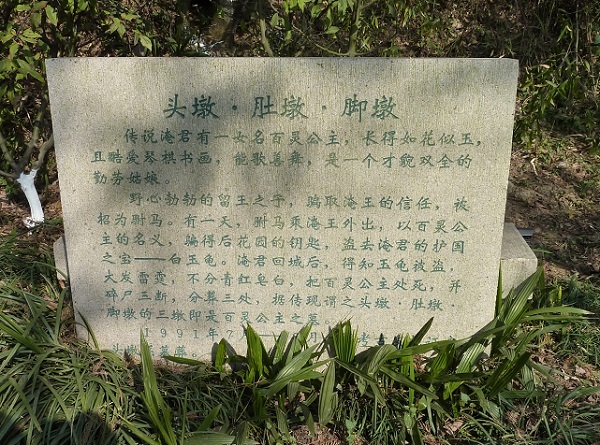 头墩·肚墩·脚墩
传说淹君有一女名百灵公主，长得如花似玉，
且酷爱琴棋书画，能歌善舞，是一个才貌双全的
勤劳姑娘。
野心勃勃的留王之子，骗取淹王的信任，被
招为驸马。有一天，驸马乘淹王外出，以百灵公
主的名义，骗得后花园的钥匙，盗去淹君的护国
之宝——白玉龟。淹君回城后，得知玉龟被盗，
大发雷霆，不分青红皂白，把百灵公主处死，并
碎尸三断，分葬三处，据传现谓之头墩·肚墩·
脚墩的三墩即是百灵公主之墓。
1991年7
头墩